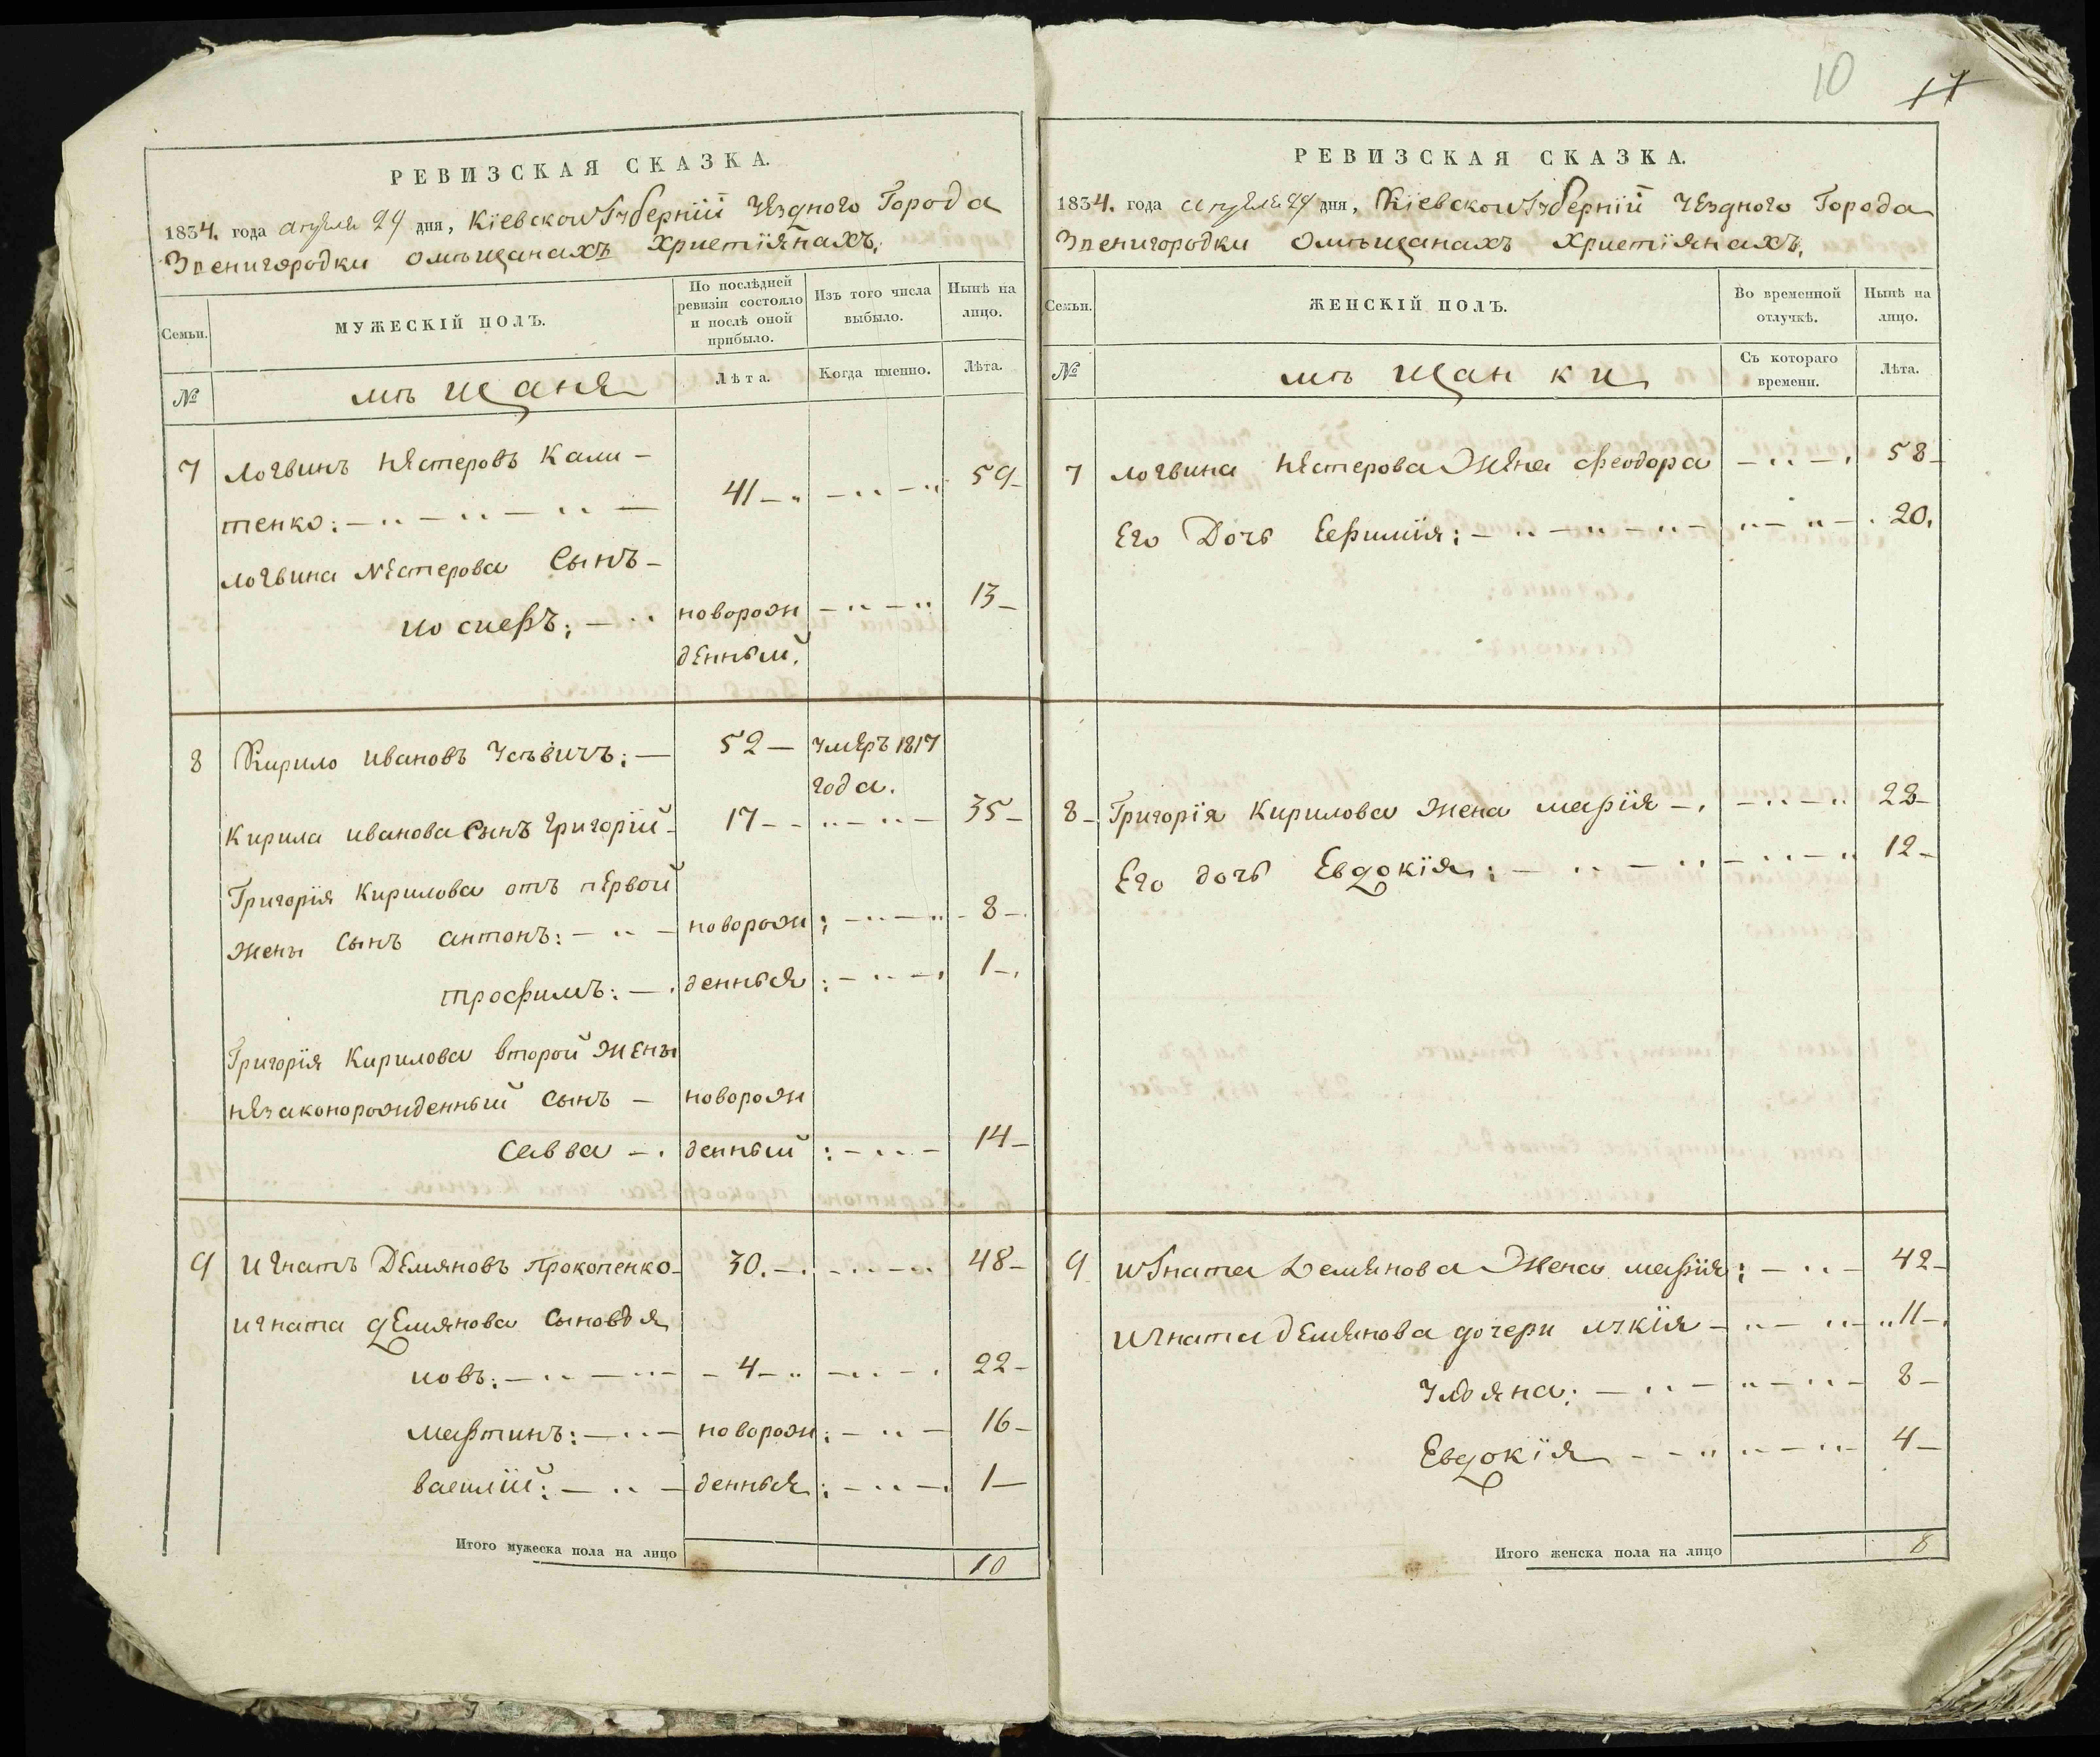 10
17
РЕВИЗСКАЯ СКАЗКА.
1834. года апреля 24 дня, Кіевской Губерніи Уезднаго Города
Звенигородки омѣщанахъ христіянахъ.
Семьи.
МУЖЕСКІЙ ПОЛЪ.
По послѣдней ревизіи состояло и послѣ оной прибыло.
Изъ того числа выбыло.
Нынѣ на лицо.
№
мѣщане
Лѣта.
Когда именно.
Лѣта.
7 Логвинъ Нестеровъ Кали-
тенко: 41 59
Логвина Нестерова Сынъ
иосифъ: новорож 13
денный.
8 Кирило ивановъ Усѣвичъ: 52 умеръ 1817
года.
Кирила иванова сынъ григорій 17 35
Григорія Кирилова отъ первой
жены Сынъ антонъ: новорож 8
трофимъ: денные 1
Григорія Кирилова второй жены
незаконорожденный сынъ новорож
савва денный 14
9 игнатъ Демяновъ прокопенко 30. 48
игната демянова сыновья
иовъ: 4 22
мартинъ: новорож 16
василій: денные 1
Итого мужеска пола на лицо 10
РЕВИЗСКАЯ СКАЗКА.
1834. года апреля 24 дня, Кіевской Губерніи Уезднаго Города
Звенигородки омѣщанахъ христіянахъ.
Семьи.
ЖЕНСКІЙ ПОЛЪ.
Во временной отлучкѣ.
Нынѣ на лицо.
№
мѣщанки
Съ котораго времени.
Лѣта.
7 логвина Нестерова Жена Феодора 58
Его Дочь Ефимія: 20.
8 Григорія Кирилова жена марія 28
Его дочь Евдокія: 12
9 игната Демянова Жена марія: 42
игната демянова дочери лукія 11
Ульяна: 8
Евдокія 4
Итого женска пола на лицо 8